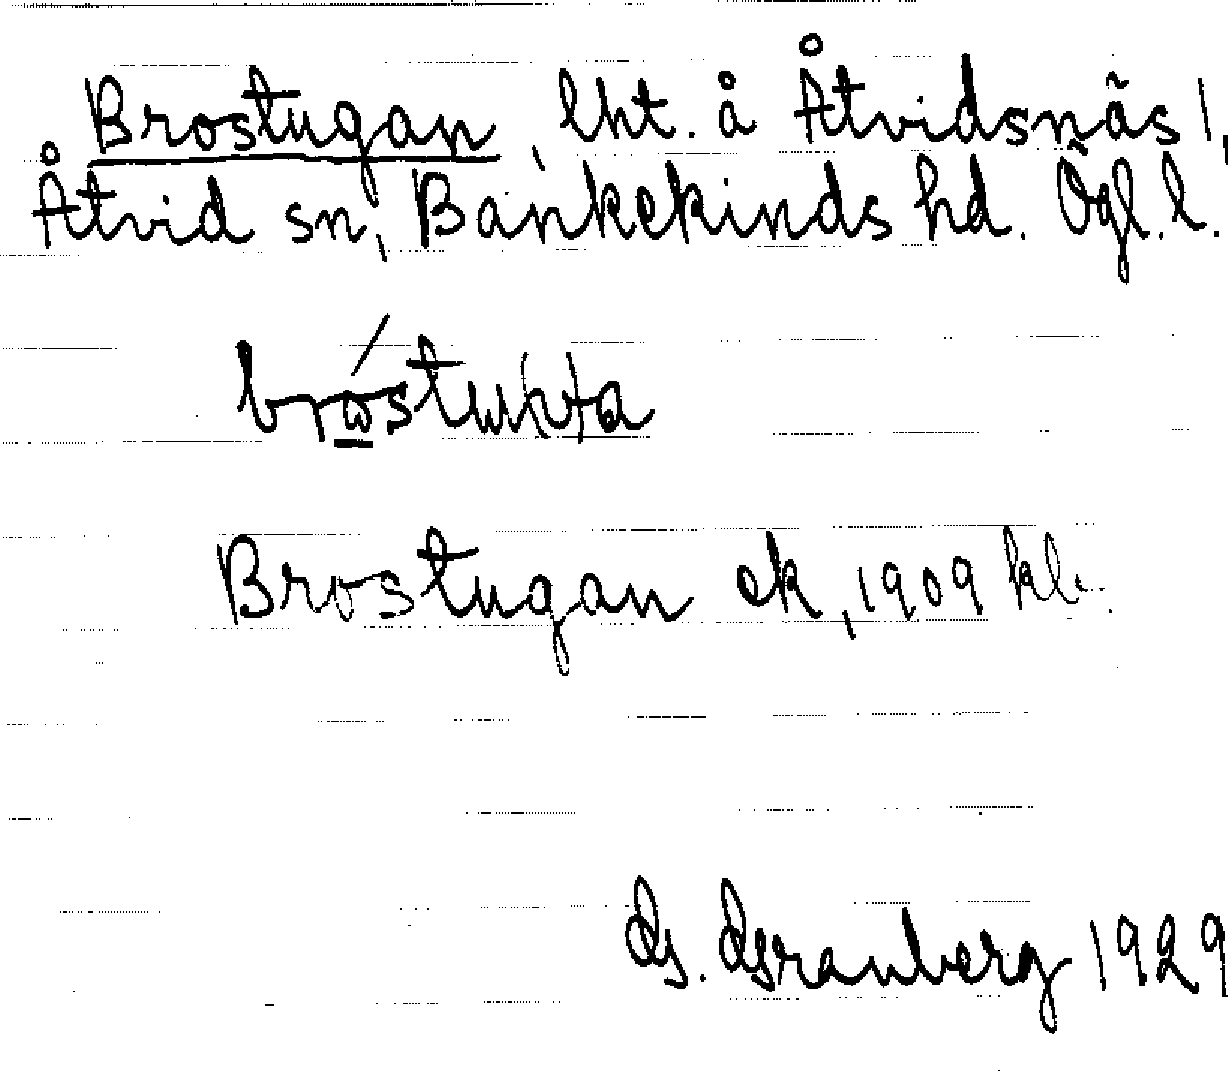 Brostugan, lht. å Åtvidsnäs 1,
Åtvid sn, Bankekinds hd. Ögl. l.
Brostugan ek, 1909 kl.
G. Granberg 1929